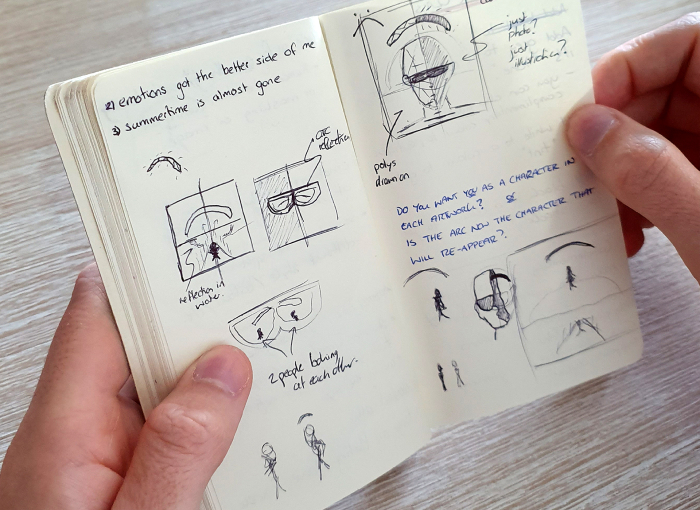 2) emotions got the better side of me
3) summertime is almost gone
ARC
reflection
reflection in
water.
2 people looking
at each other.
just
photo?
just
illustration?
polys
drawn on
DO YOU WANT YOU AS A CHARACTER IN
EACH ARTWORK? &
IS THE ARC NOW THE CHARACTER THAT
WILL RE-APPEAR?